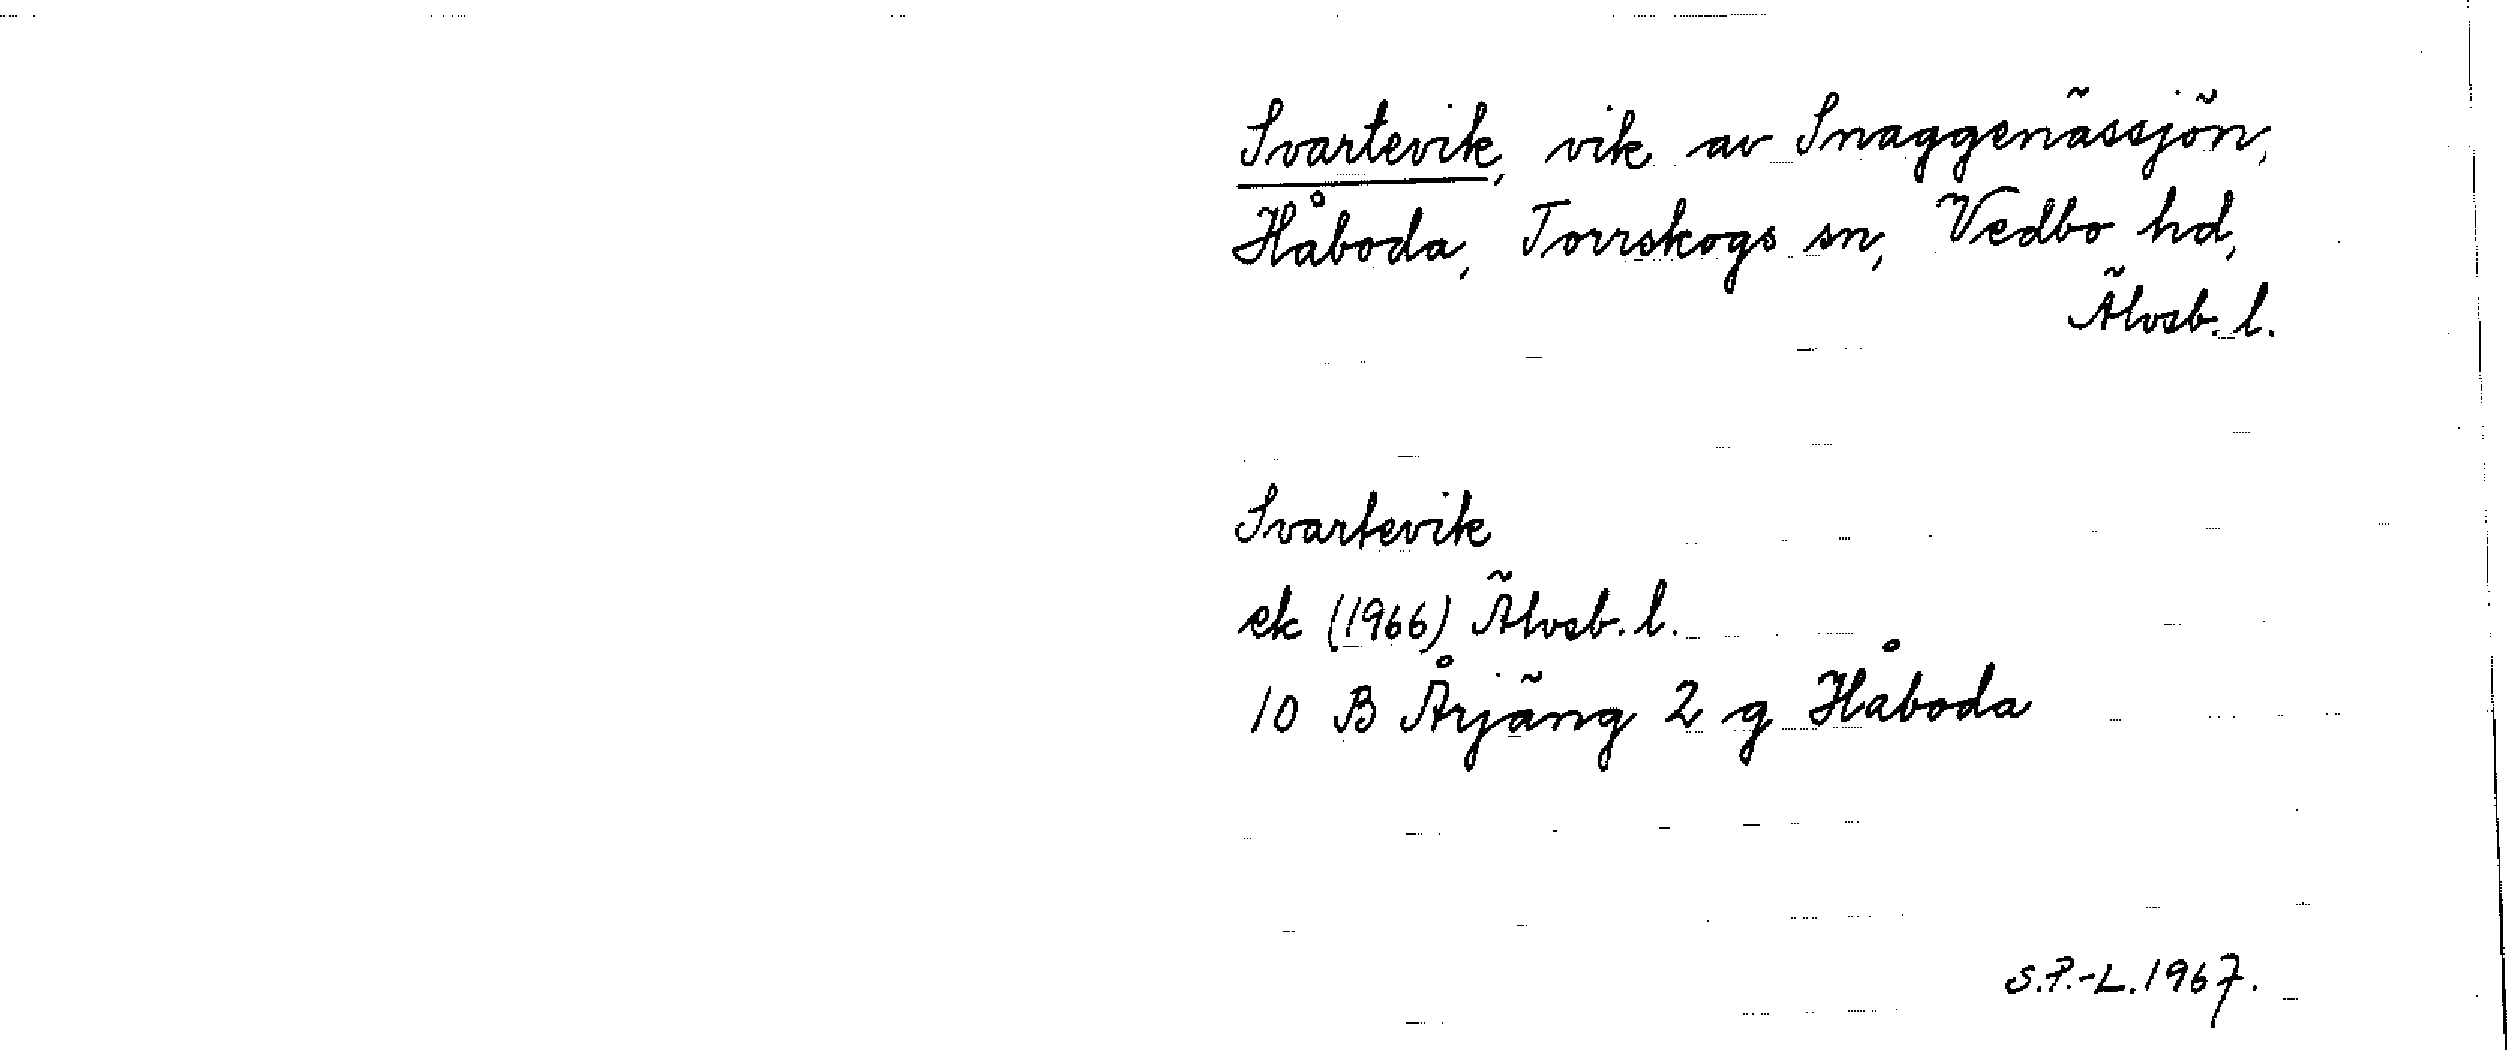 Svartevik, vik av Snaggenässjön,
Håboda, Torrskogs sn, Vedbo hd,
Älvsb. l.
Svartevik
ek (1966) Älvsb. l.
10 B Årjäng 2 g Håboda
S.P.-L. 1967.